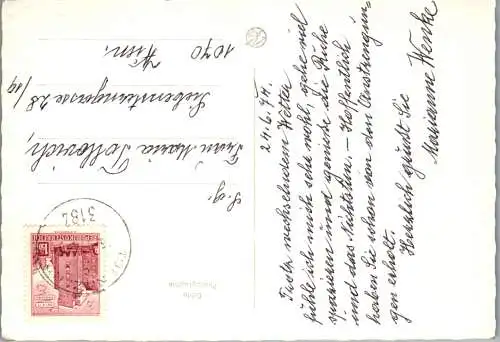 24.6.74.
Trotz wechselndem Wetter
fühle ich mich sehr wohl, gehe viel
spazieren und genieße die Ruhe
und das Nichtstun. – Hoffentlich
haben Sie schon von den Anstrengun-
gen erholt.
Herzlich grüßt Sie
Marianne
S. g.
Frau Maria
28/19
1070 Wien.
3184
Echte
Photographie
REPUBLIK ÖSTERREICH